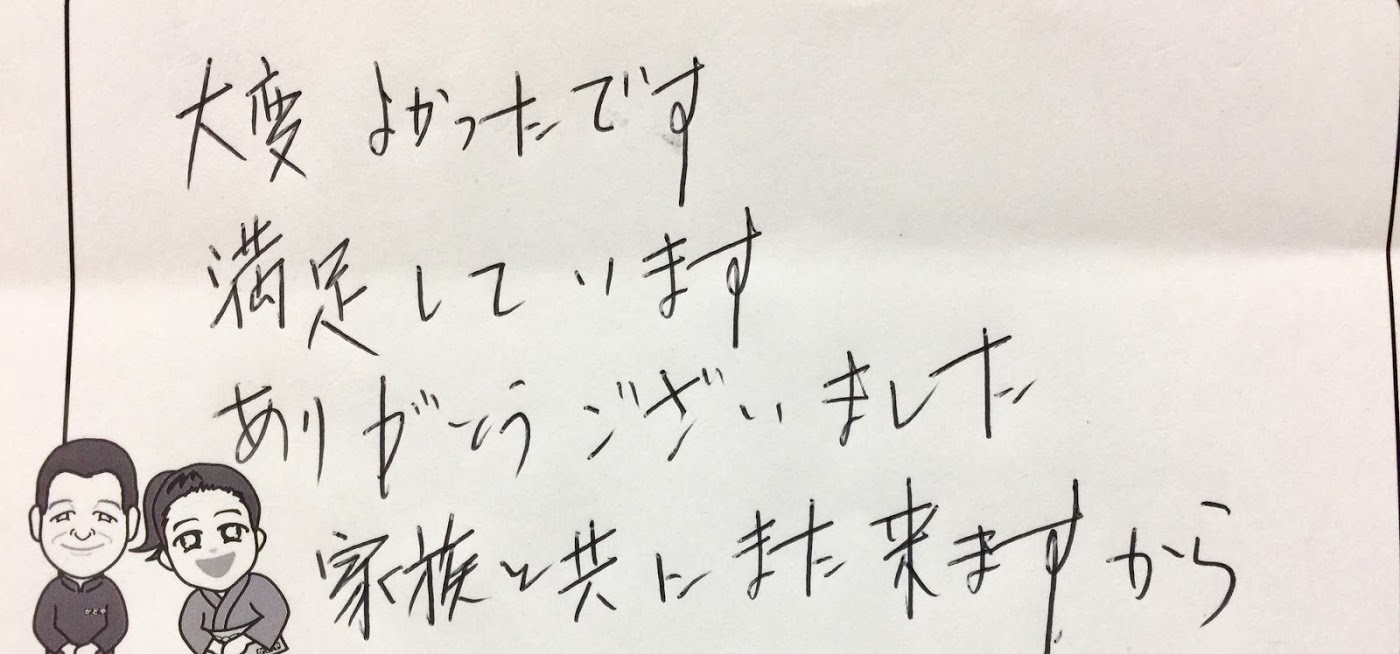 大変 よかったです
満足しています
ありがとうございました
家族と共にまた来ますから